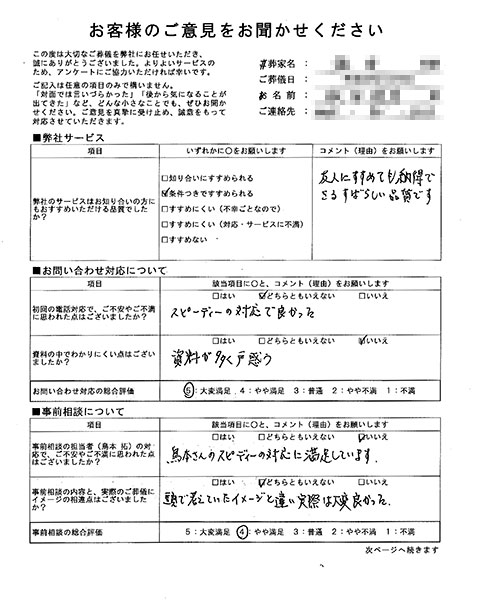 お客様のご意見をお聞かせください
この度は大切なご葬儀を弊社にお任せいただき、
誠にありがとうございました。よりよいサービスの
ため、アンケートにご協力いただければ幸いです。
ご記入は任意の項目のみで構いません。
「対面では言いづらかった」「後から気になることが
出てきた」など、どんな小さなことでも、ぜひお聞か
せください。ご意見を真摯に受け止め、誠意をもって
対応させていただきます。
葬家名：
ご葬儀日：
お名前：
ご連絡先：
■弊社サービス
項目 いずれかに〇をお願いします コメント（理由）をお願いします
弊社のサービスはお知り合いの方に
もおすすめいただける品質でした
か？
□知り合いにすすめられる
☑条件つきですすめられる
□すすめにくい（不幸ごとなので）
□すすめにくい（対応・サービスに不満）
□すすめない
友人にすすめても納得で
きるすばらしい品質です
■お問い合わせ対応について
項目 該当項目に〇と、コメント（理由）をお願いします
初回の電話対応で、ご不安やご不満
に思われた点はございましたか？
□はい ☑どちらともいえない □いいえ
スピーディーの対応で良かった
資料の中でわかりにくい点はござい
ましたか？
□はい □どちらともいえない ☑いいえ
資料が多く戸惑う
お問い合わせ対応の総合評価 5：大変満足 4：やや満足 3：普通 2：やや不満 1：不満
■事前相談について
項目 該当項目に〇と、コメント（理由）をお願いします
事前相談の担当者（鳥本 拓）の対
応で、ご不安やご不満に思われた点
はございましたか？
□はい □どちらともいえない ☑いいえ
鳥本さんのスピーディーの対応に満足しています.
事前相談の内容と、実際のご葬儀に
イメージの相違点はございました
か？
□はい ☑どちらともいえない □いいえ
頭で考えていたイメージと違い実際は大変良かった.
事前相談の総合評価 5：大変満足 4：やや満足 3：普通 2：やや不満 1：不満
次ページへ続きます